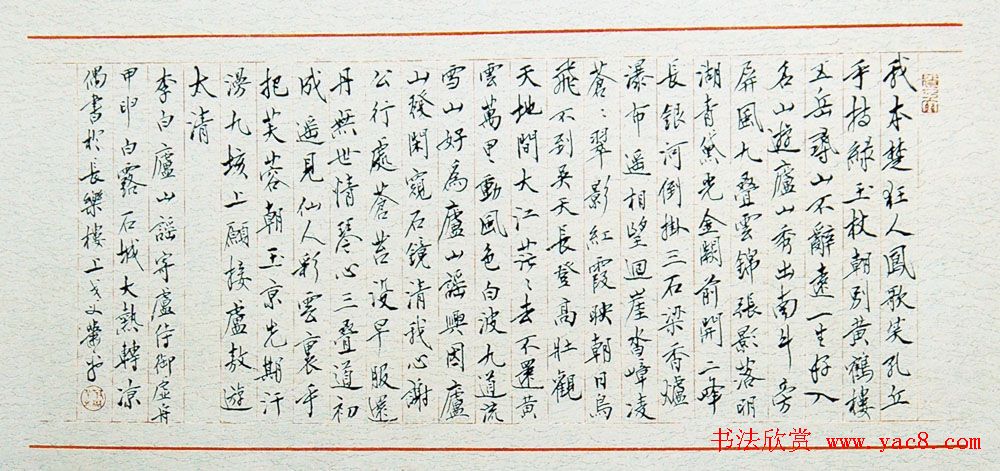 我本楚狂人鳳歌笑孔丘
手持綠玉杖朝別黃鶴樓
五岳尋山不辭遠一生好入
名山遊廬山秀出南斗旁
屏風九疊雲錦張影落明
湖青黛光金闕前開二峰
長銀河倒掛三石梁香爐
瀑布遙相望迴崖沓嶂凌
蒼々翠影紅霞映朝日鳥
飛不到吳天長登高壯觀
天地間大江茫々去不還黃
雲萬里動風色白波九道流
雪山好為廬山謠興因廬
山發閑窺石鏡清我心謝
公行處蒼苔沒早服還
丹無世情琴心三疊道初
成遙見仙人彩雲裏手
把芙蓉朝玉京先期汗
漫九垓上願接盧敖遊
太清
李白廬山謠寄盧侍御虛舟
甲申白露石城大熱轉涼
偶書於長樂樓上
书法欣赏 www.yac8.com